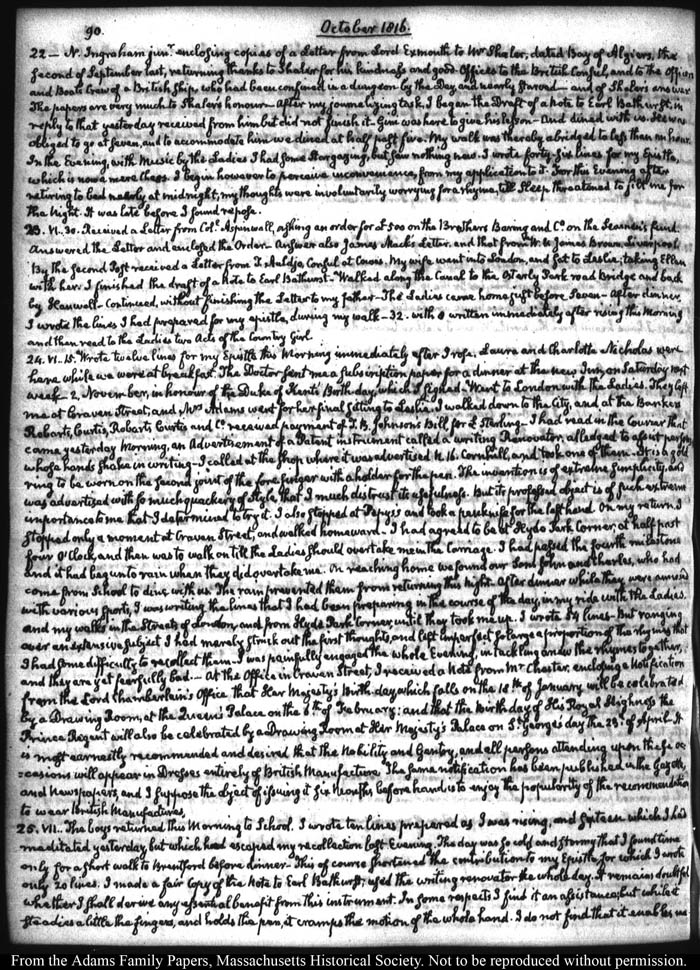 90. October 1816.
22 — N. Ingraham junr. enclosing copies of a Letter from Lord Exmouth to Mr Shaler, dated Bay of Algiers, the
second of September last, returning thanks to Shaler for his kindness and good Offices to the British Consul, and to the Officers
and Boats Crew of a British Ship who had been confined in a dungeon by the Dey, and nearly starved — and of Shaler's answer
The papers are very much to Shaler's honour — After my journalizing task, I began the Draft of a Note to Earl Bathurst, in
reply to that yesterday received from him but did not finish it — was here to give his lesson — And dined with us. He was
obliged to go at seven, and to accommodate him we dined at half past five. My walk was thereby abridged to less than an hour.
In the Evening, with Music by the Ladies I had some Stargazing, but saw nothing new. I wrote forty-six lines for my Epistle,
which is now a mere chaos. I begin however to perceive inconvenience, from my application to it. For this Evening after
retiring to bed nearly at midnight, my thoughts were involuntarily worrying for a rhyme, till Sleep threatened to fail me for
the Night. It was late before I found repose.
23. VI. 30. Received a Letter from Coll. Aspinwall, asking an order for £500 on the Brothers Baring and Co. on the Seamen's fund.
Answered the Letter and enclosed the Order — Answer also James Mack's Letter, and that from W. & James Brown, Liverpool
By the second Post received a Letter from T. Auldjo, Consul at Cowes. My wife went into London, and sat to Leslie; taking Ellen
with her. I finished the draft of a Note to Earl Bathurst — Walked along the Canal to the Osterly Park road Bridge and back
by Hanwell — Continued, without finishing the Letter to my father — The Ladies came home just before Seven — After dinner
I wrote the lines I had prepared for my epistle, during my walk — 32. with 8 written immediately after rising this Morning
and then read to the Ladies two Acts of the Country Girl.
24. VI. 15. Wrote twelve lines for my Epistle this Morning immediately after I rose. Laura and Charlotte Nicholas were
here while we were at breakfast. The Doctor sent me a subscription paper for a dinner at the new Inn, on Saturday next
week — 2. November, in honour of the Duke of Kent's Birth-day, which I signed. Went to London with the Ladies. They left
me at Craven Street, and Mrs Adams went for her final sitting to Leslie. I walked down to the City, and at the Bankers
Robarts, Curtis, Robarts Curtis and Co. received payment of T. B. Johnson's Bill for £ Sterling — I had read in the Courier that
came yesterday Morning, an Advertisement of a Patent instrument called a writing Renovator, alledged to assist persons
whose hands shake in writing — I called at the shop where it was advertised N. 16. Cornhill, and took one of them. It is a gold
ring to be worn on the second joint of the fore finger with a holder for the pen. The invention is of extreme simplicity, and
was advertised with so much quackery of style, that I much distrust its usefulness. But its professed object is of such extreme
importance to me that I determined to try it. I also stopped at Pepys's and took a for the left hand. On my return I
stopped only a moment at Craven Street, and walked homeward. I had agreed to be at Hyde Park Corner, at half past
four O'Clock, and then was to walk on till the Ladies should overtake me in the Carriage. I had passed the fourth milestone
and it had begun to rain when they did overtake me. On reaching home we found our Sons John and Charles, who had
come from School to dine with us. The rain prevented them from returning this Night. After dinner while they were amused
with various sports, I was writing the lines that I had been preparing in the course of the day, in my ride with the Ladies
and my walks in the Streets of London, and from Hyde Park Corner, until they took me up. I wrote 54 lines — But ranging
over an extensive subject I had merely struck out the first thoughts, and left imperfect so large a proportion of the rhymes that
I had some difficulty to recollect them — I was painfully engaged the whole Evening, in tackling anew the rhymes together,
and they are yet fearfully bad — At the Office in Craven Street, I received a Note from Mr Chester, enclosing a Notification
from the Lord Chamberlain's Office that Her Majesty's Birth-day which falls on the 18th of January will be celebrated
by a Drawing Room, at the Queen's Palace on the 6th of February: and that the birthday of His Royal Highness the
Prince Regent will also be celebrated by a Drawing Room at Her Majesty's Palace on St. George's day the 23d of April. It
is most earnestly recommended and desired that the Nobility and Gentry, and all persons attending upon these oc-
=casions will appear in Dresses entirely of British Manufacture. The same notification has been published in the Gazette,
and Newspapers, and I suppose the object of issuing it six Months before hand is to enjoy the popularity of the recommendation
to wear British Manufactures.
25. VII. The boys returned this Morning to School. I wrote ten lines prepared as I was rising, and sixteen which I had
meditated yesterday, but which had escaped my recollection last Evening. The day was so cold and stormy that I found time
only for a short walk to Brentford before dinner — This of course shortened the contribution to my Epistle, for which I wrote
only 20 lines. I made a fair Copy of the Note to Earl Bathurst; used the writing renovator the whole day. It remains doubtful
whether I shall derive any essential benefit from this instrument. In some respects I find it an assistance; but whilst it
steadies a little the fingers, and holds the pen, it cramps the motion of the whole hand. I do not find that it enables me
From the Adams Family Papers, Massachusetts Historical Society. Not to be reproduced without permission.